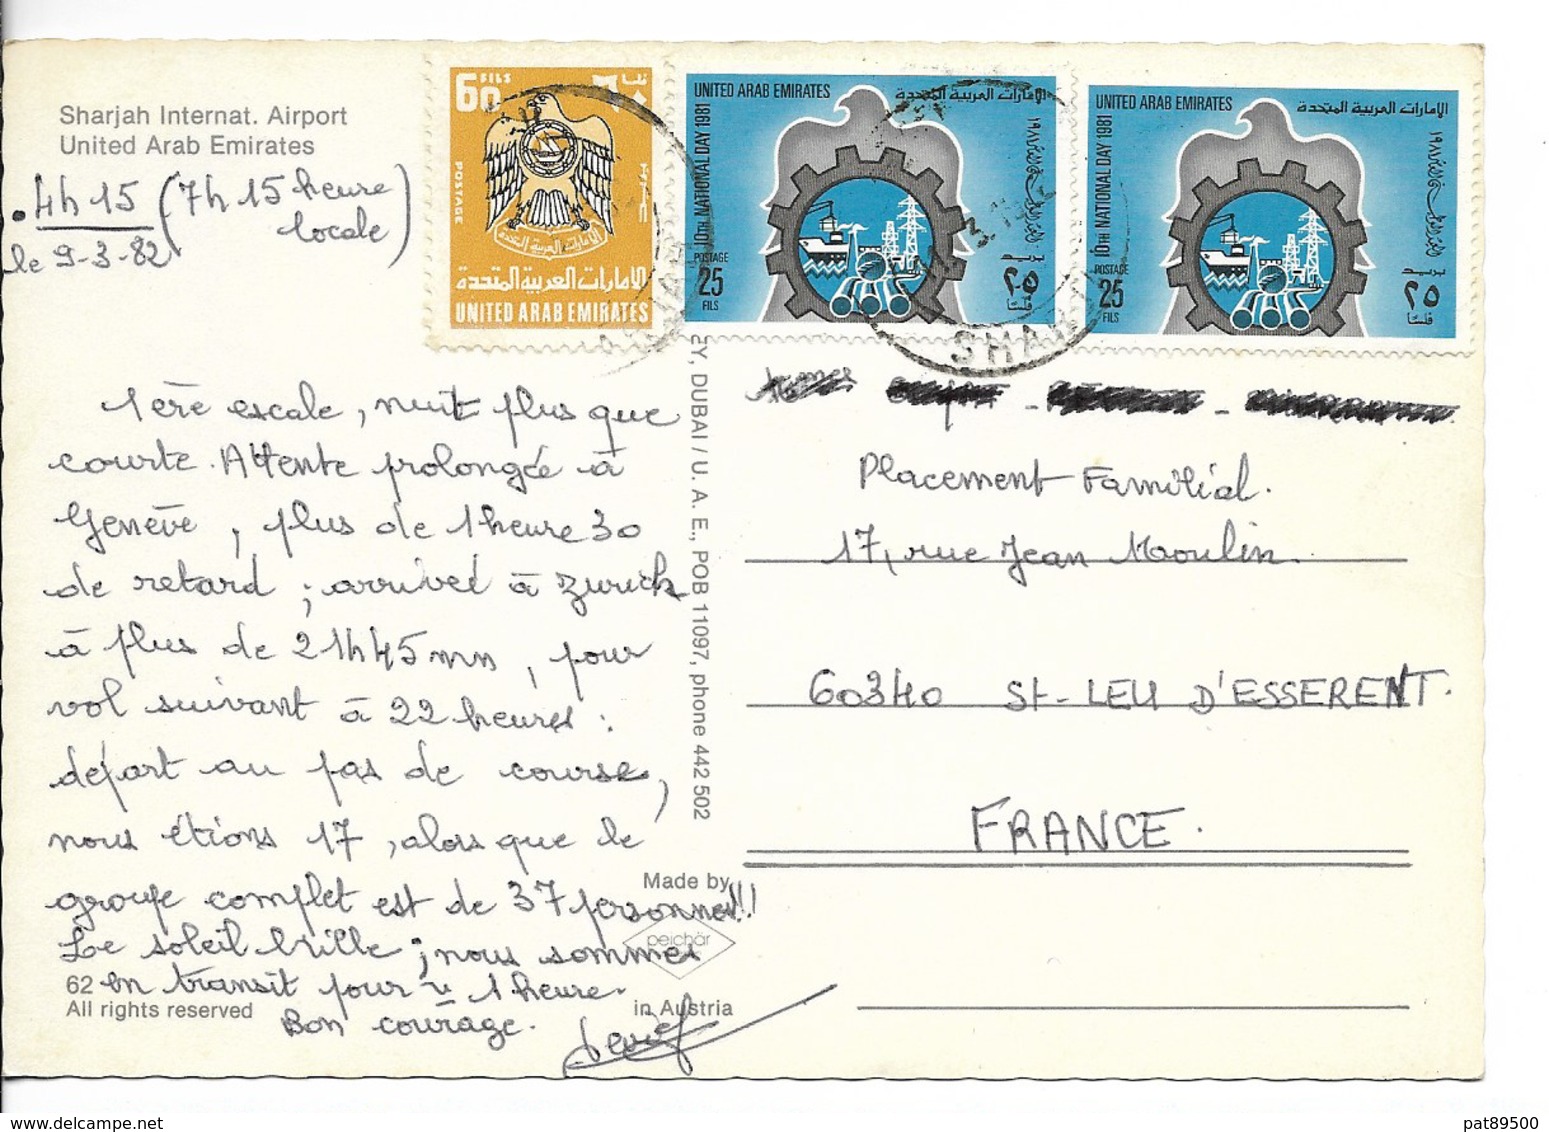 Sharjah Internat. Airport
United Arab Emirates
. 4h15 (7h15 heure
locale)
le 9-3-82
60 FILS
POSTAGE
الامارات العربية المتحدة
الامارات العربية المتحدة
UNITED ARAB EMIRATES
UNITED ARAB EMIRATES الامارات العربية المتحدة
10TH NATIONAL DAY 1981
POSTAGE
25 ٢٥
FILS فلسًا
UNITED ARAB EMIRATES الامارات العربية المتحدة
10TH NATIONAL DAY 1981
POSTAGE
25 ٢٥
FILS فلسًا
1ère escale, nuit plus que
courte. Attente prolongée à
Genève, plus de 1heure30
de retard ; arrivée à Zurich
à plus de 21h45mn, pour
vol suivant à 22 heures :
départ au pas de course,
nous étions 17, alors que le
groupe complet est de 37 personnes!!!
Le soleil brille ; nous sommes
en transit pour 1 heure.
Bon courage.
EY, DUBAI / U. A. E., POB 11097, phone 442 502
Placement Familial.
17, rue Jean Moulin.
60340 St-LEU D'ESSERENT.
FRANCE.
Made by
peichär
in Austria
62
All rights reserved
pat89500